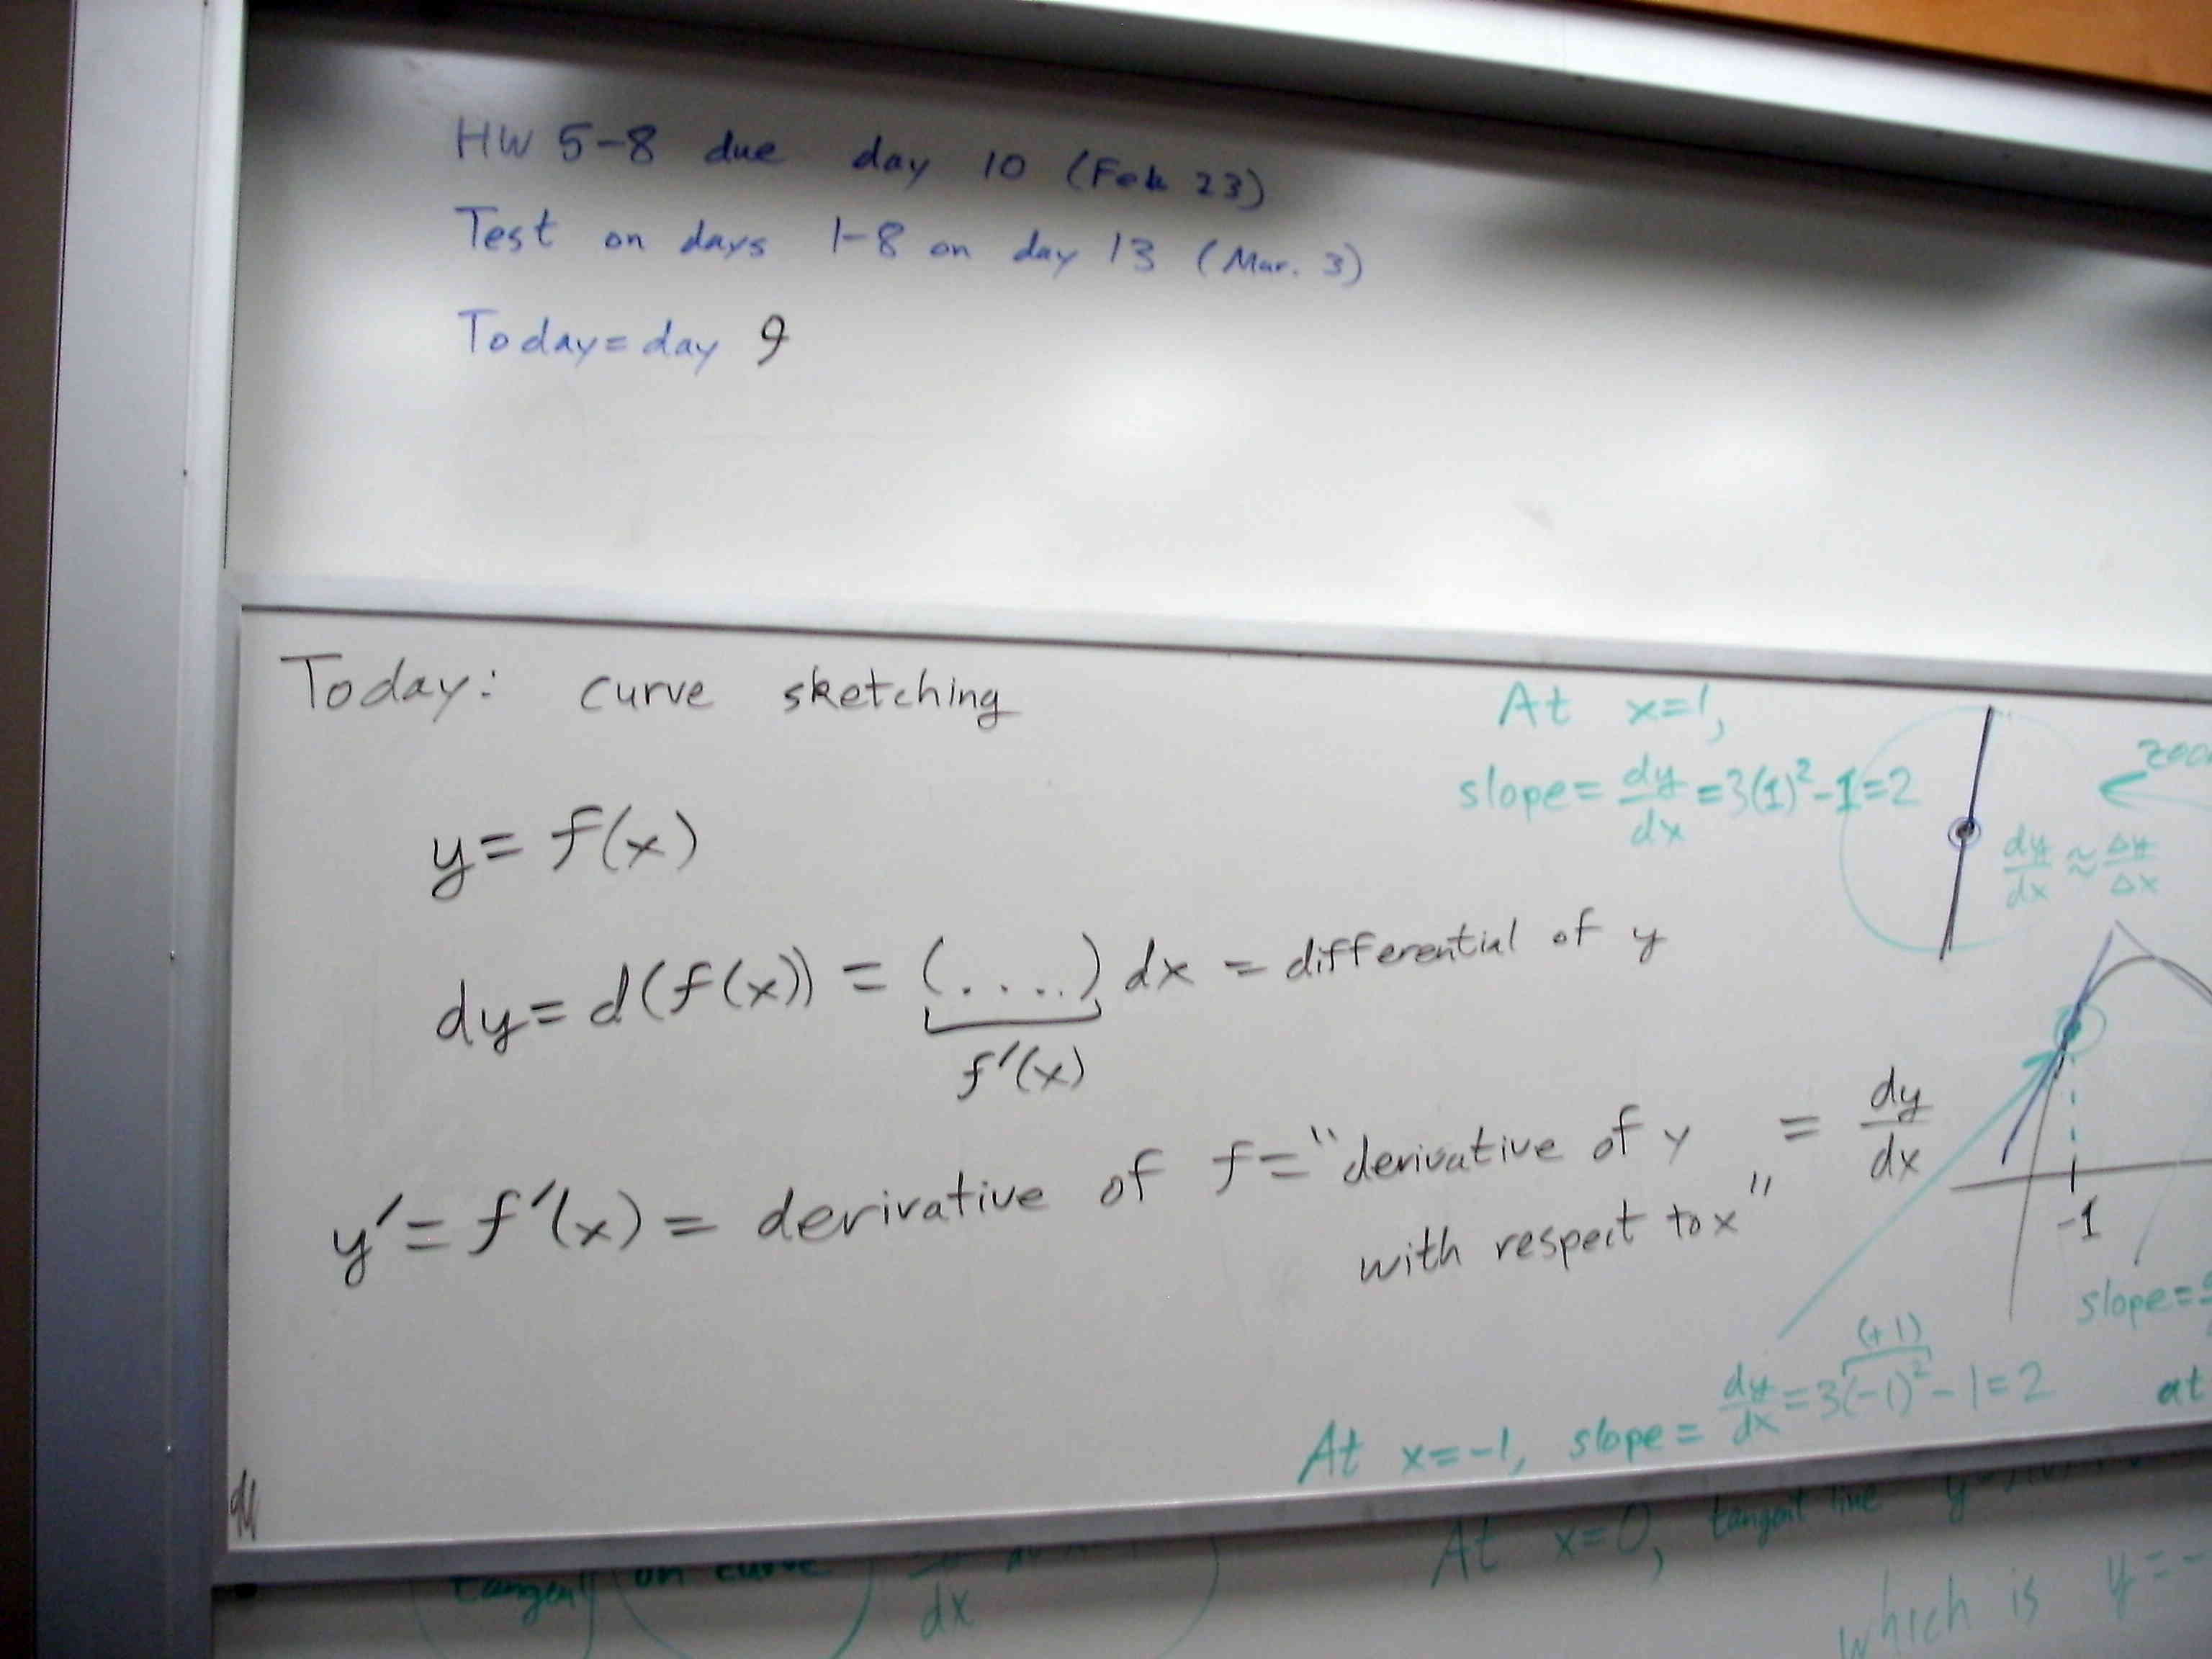 HW 5-8 due day 10 (Feb 23)
Test on days 1-8 on day 13 (Mar. 3)
Today = day 9
Today: curve sketching
y = f(x)
dy = d(f(x)) = (....) dx = differential of y
f'(x)
y' = f'(x) = derivative of f = "derivative of y
with respect to x" = dy/dx
At x=1,
slope = dy/dx = 3(1)² - 1 = 2
dy/dx ≈ Δy/Δx
-1
slope =
(+1)
At x=-1, slope = dy/dx = 3(-1)² - 1 = 2
at
At x=0, tangent line y
which is y = -
on curve
dx